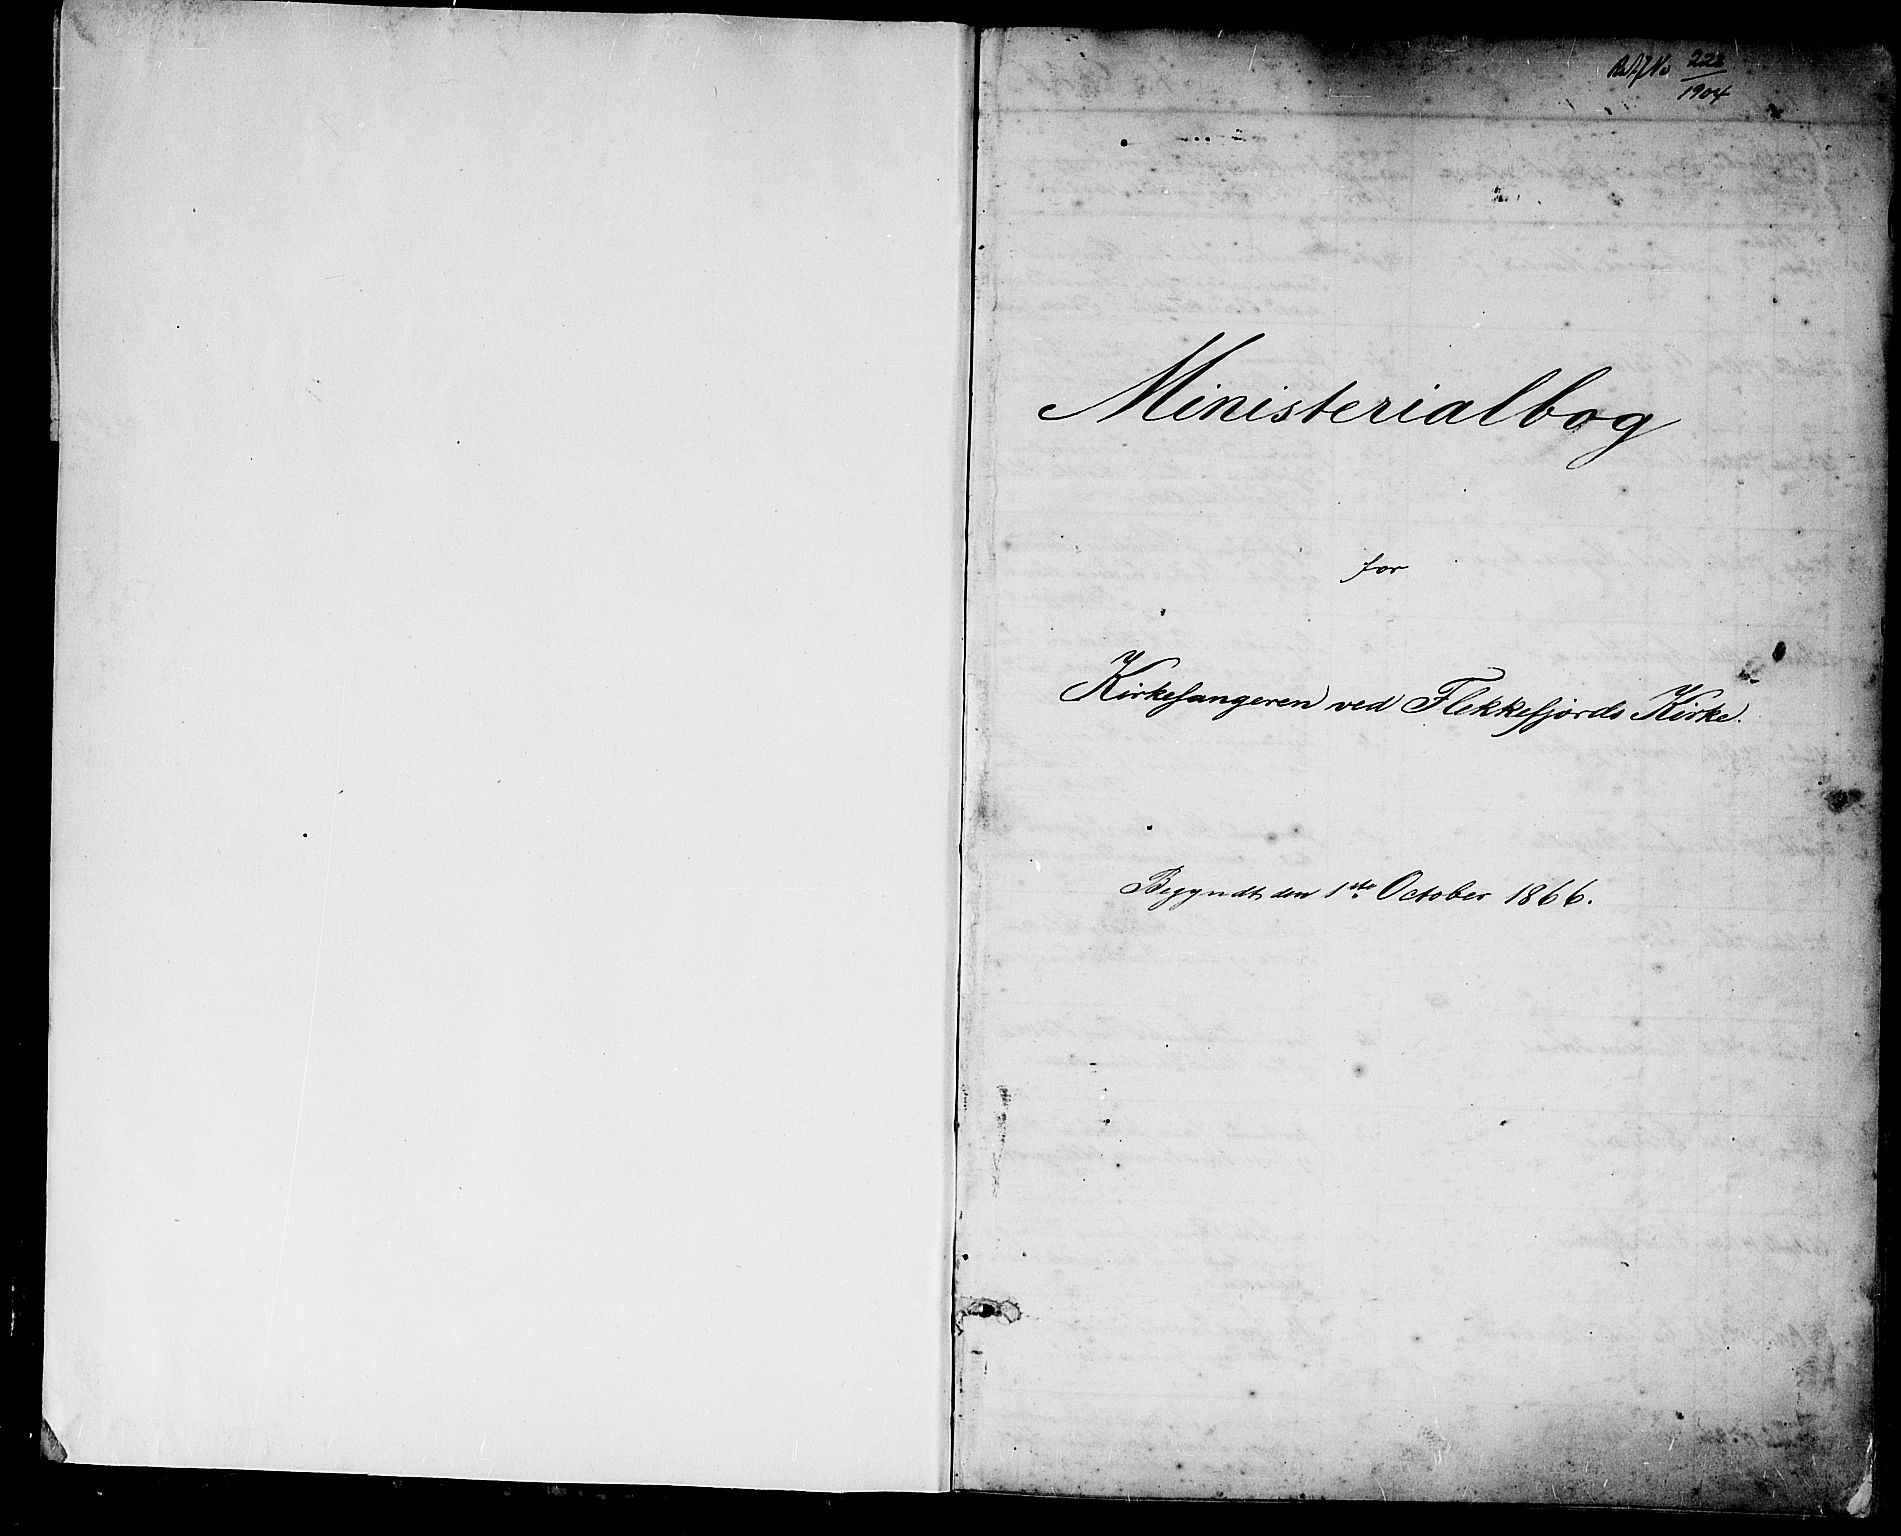 222
1904
Ministerialbog
for
Kirkesangeren ved Flekkefjords Kirke.
Begyndt den 1ste October 1866.